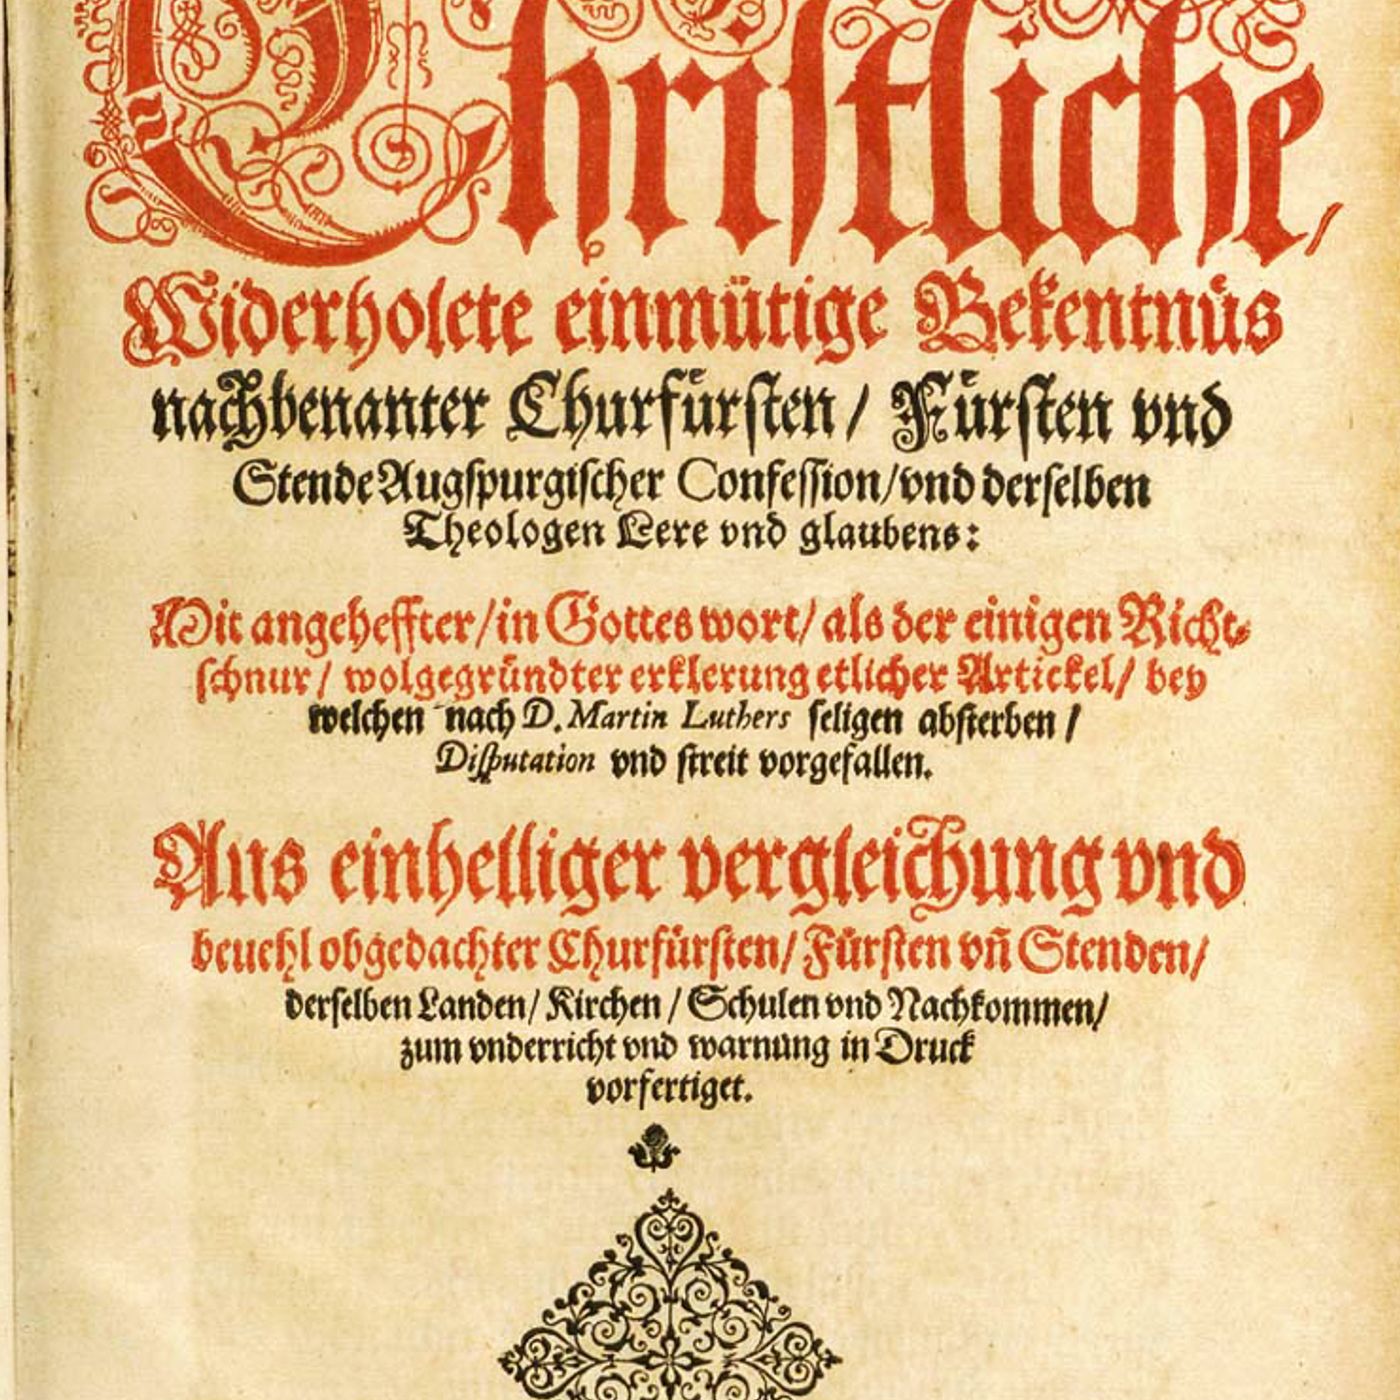 Christliche/
Widerholete einmütige Bekentnüs
nachbenanter Churfürsten/ Fürsten vnd
Stende Augspurgischer Confession/ vnd derselben
Theologen Lere vnd glaubens:
Mit angeheffter/ in Gottes wort/ als der einigen Richt-
schnur/ wolgegründter erklerung etlicher Artickel/ bey
welchen nach D. Martin Luthers seligen absterben/
Disputation vnd streit vorgefallen.
Aus einhelliger vergleichung vnd
beuehl obgedachter Churfürsten/ Fürsten vñ Stenden/
derselben Landen/ Kirchen/ Schulen vnd Nachkommen/
zum vnderricht vnd warnung in Druck
vorfertiget.